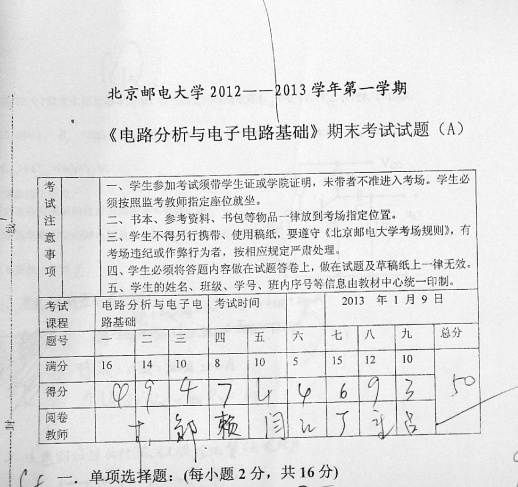 北京邮电大学 2012——2013 学年第一学期
《电路分析与电子电路基础》期末考试试题（A）
考试注意事项
一、学生参加考试须带学生证或学院证明，未带者不准进入考场。学生必
须按照监考教师指定座位就坐。
二、书本、参考资料、书包等物品一律放到考场指定位置。
三、学生不得另行携带、使用稿纸，要遵守《北京邮电大学考场规则》，有
考场违纪或作弊行为者，按相应规定严肃处理。
四、学生必须将答题内容做在试题答卷上，做在试题及草稿纸上一律无效。
五、学生的姓名、班级、学号、班内序号等信息由教材中心统一印制。
考试课程 电路分析与电子电路基础 考试时间 2013 年 1 月 9 日
题号 一 二 三 四 五 六 七 八 九 总分
满分 16 14 10 8 10 5 15 12 10
得分 9 4 7 4 4 6 9 3 50
阅卷教师 郭 赖 闫 丁 吕
一．单项选择题：(每小题 2 分，共 16 分)